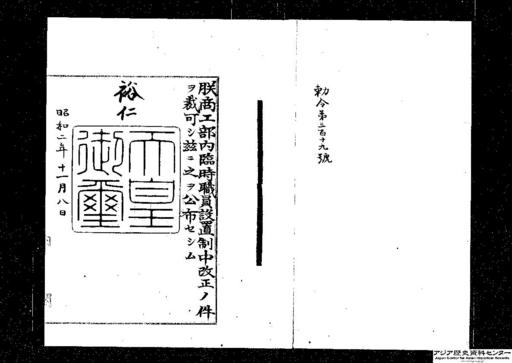 勅令第三百十九號
朕商工部内臨時職員設置制中改正ノ件
ヲ裁可シ茲ニ之ヲ公布セシム
裕仁
天皇
御璽
昭和二年十一月八日
アジア歴史資料センター
Japan Center for Asian Historical Records